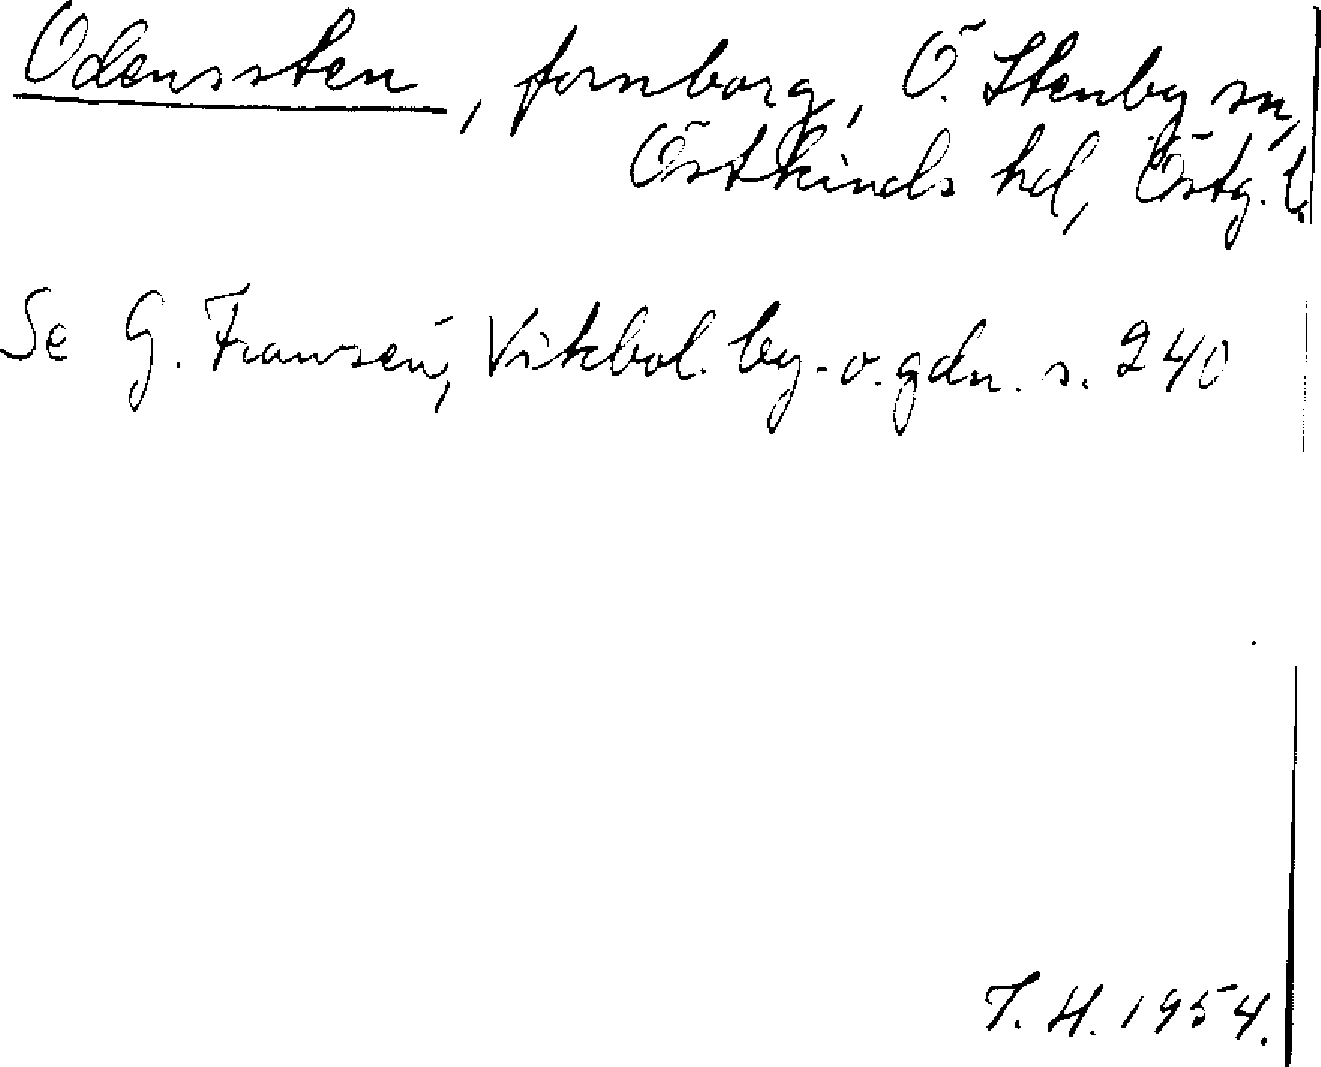 Odenssten, fornborg, Ö. Stenby sn,
Östkinds hd, Östg. l.
Se G. Fransén, Vikbol. by- o. gdn. s. 240
T. H. 1954.